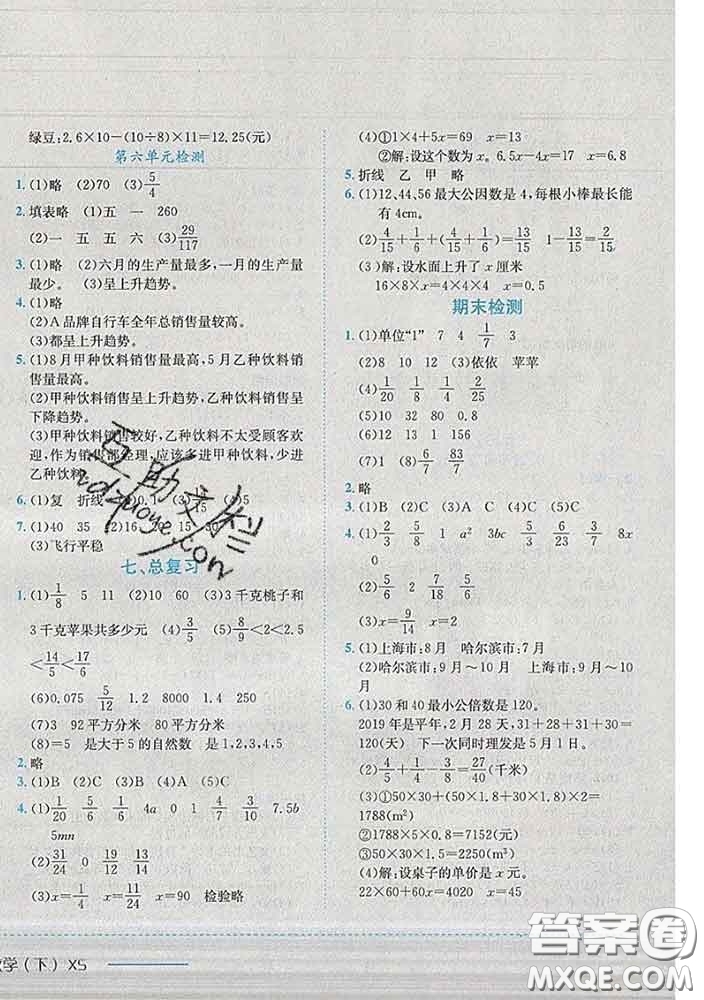 绿豆:2.6×10-(10÷8)×11=12.25(元)
第六单元检测
1. (1)略 (2)70 (3)5/4
2. 填表略 (1)五 一 260
(2)一 五 五 六 (3)29/117
3. (1)略 (2)六月的生产量最多,一月的生产量最少。 (3)呈上升趋势。
4. (1)略
(2)A品牌自行车全年总销售量较高。
(3)都呈上升趋势。
5. (1)8月甲种饮料销售量最高,5月乙种饮料销售量最高。
(2)甲种饮料销售量呈上升趋势,乙种饮料销售量呈下降趋势。
(3)甲种饮料销售较好,乙种饮料不太受顾客欢迎,作为销售部经理,应该多进甲种饮料,少进乙种饮料。
6. (1)复 折线
7. (1)40 35 (2)16 20 15 30
(3)飞行平稳
七、总复习
1. (1)1/8 5 11 (2)10 60 (3)3千克桃子和
3千克苹果共多少元 (4)3/5 (5)8/9<2<2.5
<14/5<17/6
(6)0.075 5/12 1.2 8000 1.4
(7)3 92平方分米 80平方分米
(8)=5 是大于5的自然数 1 2 3 4
2. 略
3. (1)B (2)C (3)C (4)A (5)C
4. (1)1/20 5/6 1/6 4a 0 1 4/7 3/10 7.5b
5mn
(2)31/24 0 19/12 13/14
(3)x=1/4 x=3/4 x=90 检验略
(4)①1×4+5x=69 x=13
②解:设这个数为x。6.5x-4x=17 x=6.8
5. 折线 乙 甲 略
6. (1)12,44,56最大公因数是4,每根小棒最长能
有4cm。
(2)4/15+1/6+(4/15-1/6)+1/3=13/15 1-13/15=2/15
(3)解:设水面上升了x厘米
16×8×x=4×4×4 x=0.5
期末检测
1. (1)单位“1” 7 4 1/7 3
(2)8 10 12 (3)依依 苹苹
(4)1/20 1/8 1/4 2/25
(5)10 32 80 0.8
(6)12 13 1 156
(7)1 (8)6/7 83/7
2. 略
3. (1)B (2)C (3)A (4)B (5)C
4. (1)2/3 5/9 1 a² 3bc 5/6 6/23 3/7 8x
0
(2)8/15 5/12 7/6 23/18
(3)x=9/14 x=2
5. (1)上海市:8月 哈尔滨市:7月
(2)哈尔滨市:9月～10月 上海市:9月～10月
6. (1)30和40最小公倍数是120。
2019年是平年,2月28天,31+28+31+30=
120(天) 下一次同时理发是5月1日。
(2)1/2+4/5-3/8=27/40(千米)
(3)①50×30+(50×1.8+30×1.8)×2=
1788(m²)
②1788×5×0.8=7152(元)
③50×30×1.5=2250(m³)
(4)解:设桌子的单价是x元。
22×60+60x=4020 x=45
数学(下) XS
互助文栏
zdzuoye.con
答案卷
MXQE.COM